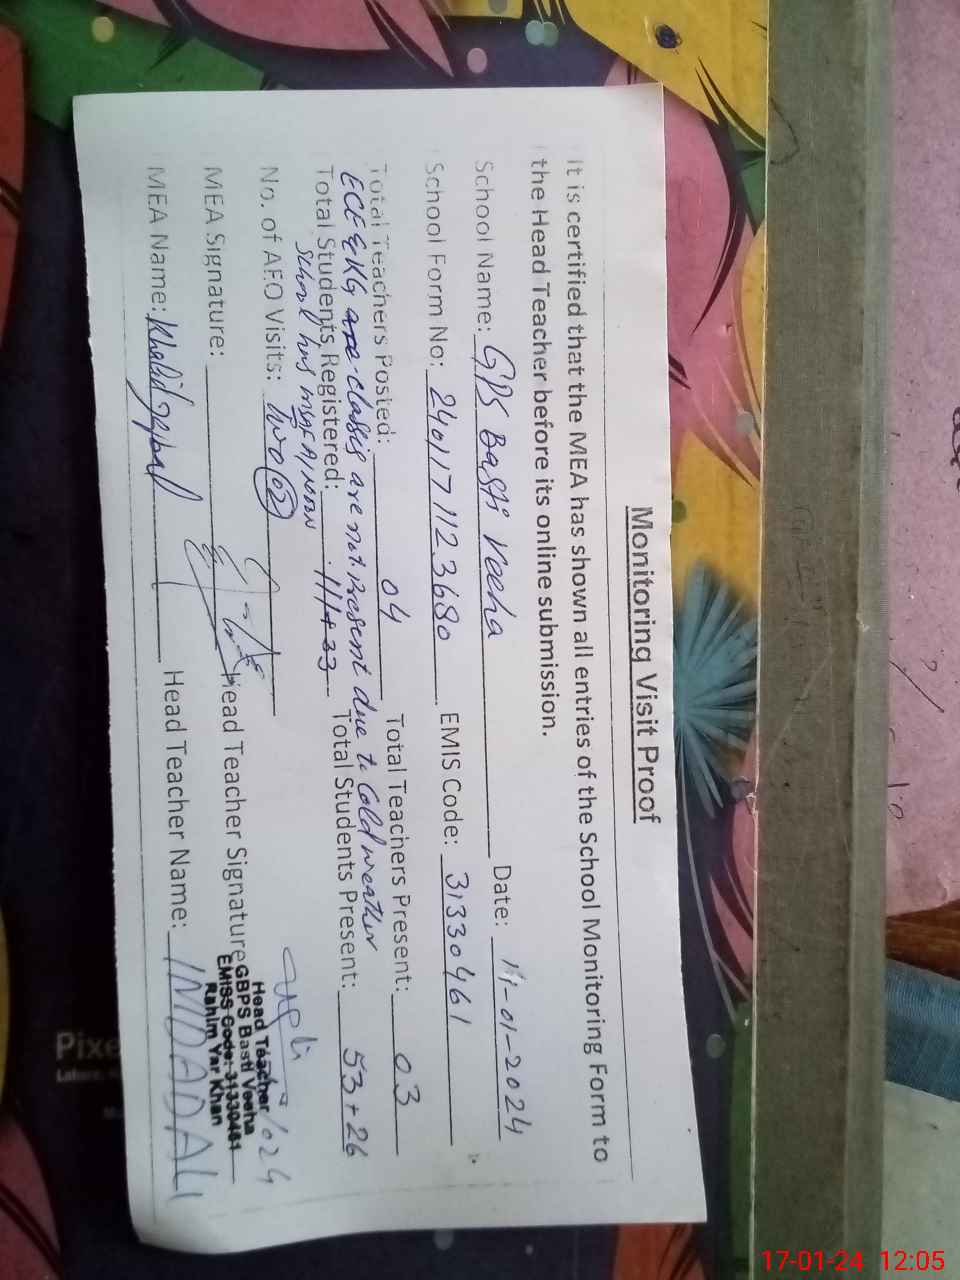 Monitoring Visit Proof
It is certified that the MEA has shown all entries of the School Monitoring Form to
the Head Teacher before its online submission.
School Name: GPS Basti Veeha Date: 11-01-2024
School Form No: 2401171123680 EMIS Code: 31330461
Total Teachers Posted: 04 Total Teachers Present: 03
ECE & KG are classes are not Present due to Cold weather
Total Students Registered: 111+33 Total Students Present: 53+26
School has
No. of AEO Visits: two (02)
MEA Signature: Head Teacher Signature
Head Teacher
GBPS Basti Veeha
EMISS Code:-31330461
Rahim Yar Khan
MEA Name: Khalid Iqbal Head Teacher Name: IMDAD ALI
Pixe
17-01-24 12:05